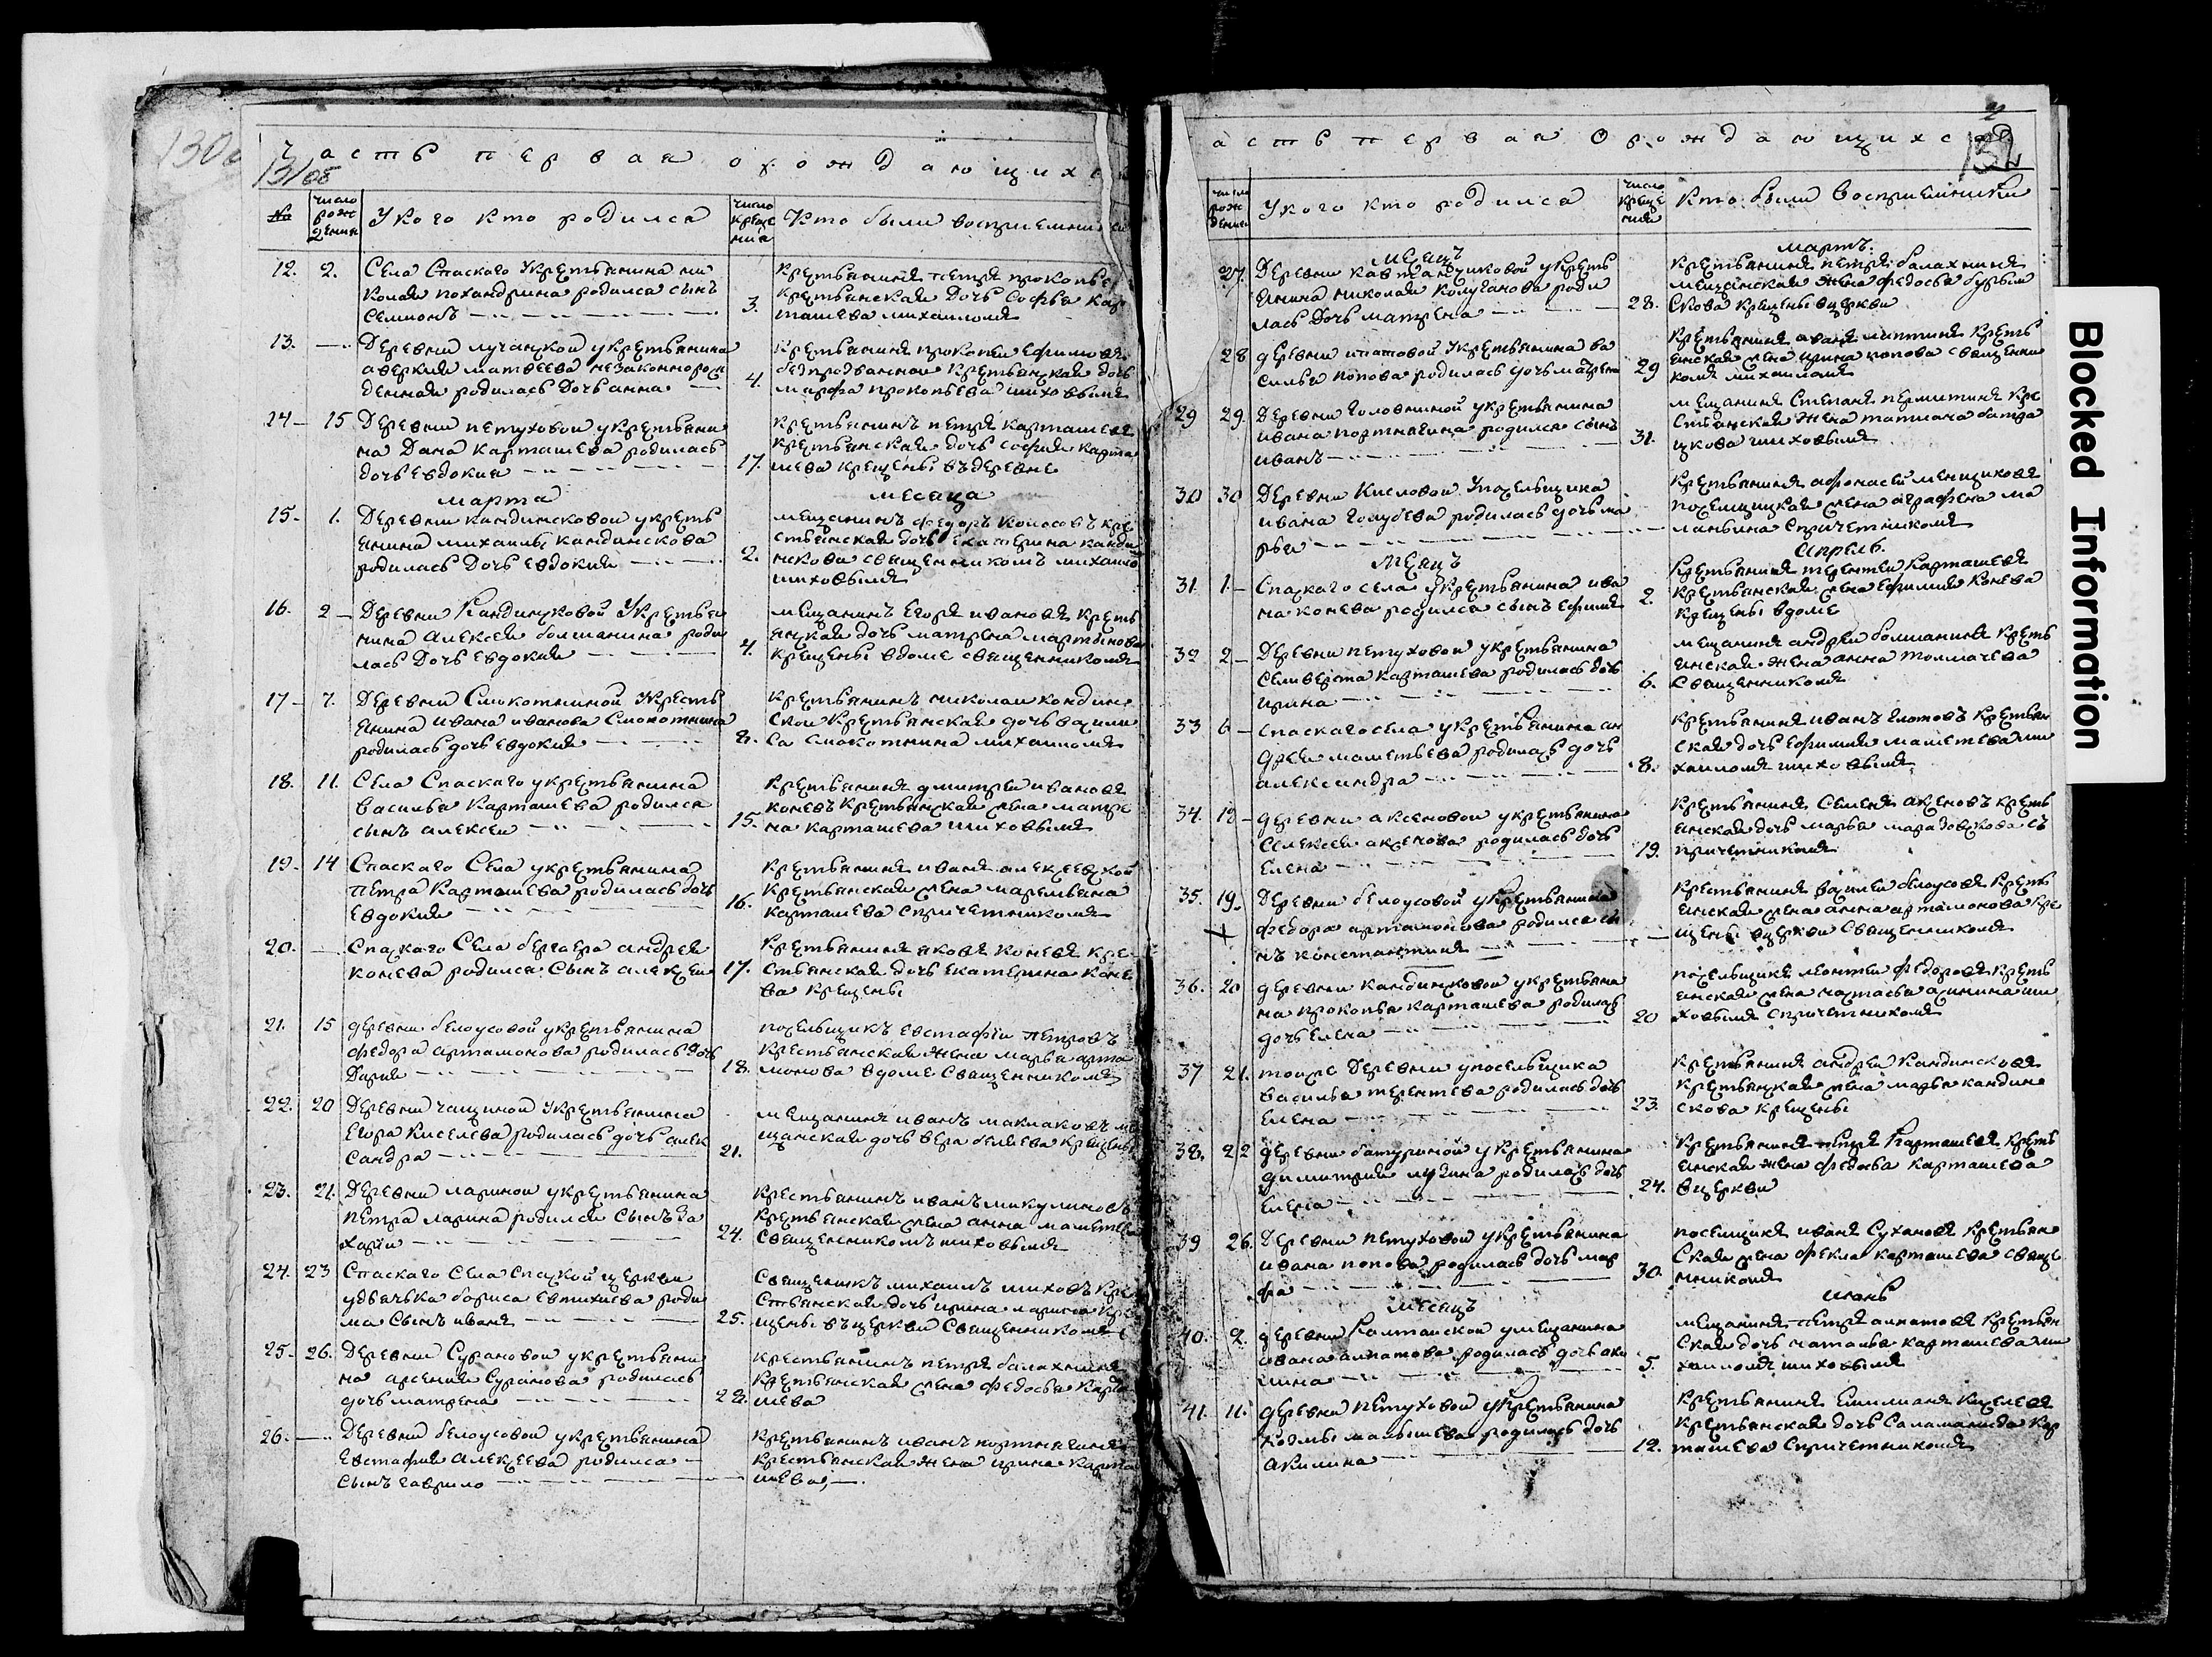 130
131/об
часть первая о рождающихс
№
число рож дения
У кого кто родился
число креще ния
Кто были восприемники
12. 2. Села Спаскаго у крестьянина ни
колая похандрина родился сынъ
Семионъ
3.
крестьянинъ петръ прокопье
крестьянская дочь Софья кар
ташева михаиломъ
13. Деревни лучанской у крестьянина
аверкия матвеева незаконнорож
денная родилась дочь анна
4.
крестьянинъ прокопеи ефимовъ
крестьянская дочь
марфа прокопьева шиховымъ
24 15 Деревни петуховой у крестьяни
на Дана Карташева родилась
дочь евдокия
17.
крестьянинъ петръ карташевъ
крестьянская дочь софия карта
шева крещены въ деревне
марта
месяца
15. 1. Деревни кандинсковой у кресть
янина михаилы кандинскова
родилась дочь евдокия
2.
мещанинъ федоръ колосовъ кре
стьянская дочь екатерина канди
нскова священникомъ михаило
шиховымъ
16. 2 Деревни Кандинсковой у крестья
нина алексея болшанина роди
лась дочь евдокия
4.
мещанинъ егоръ ивановъ кресть
янская дочь матрена мартынова
крещены вдоме священникомъ
17 7. Деревни Смокотниной у кресть
янина ивана иванова Смокотнина
родилась дочь евдокия
8.
крестьянинъ николаи кондин
ской крестьянская дочь васили
са смокотнина михаиломъ
18. 11. Села Спаскаго у крестьянина
василья Карташева родился
сынъ алексеи
15.
крестьянинъ дмитреи ивановъ
коневъ крестьянская жена матре
на карташева шиховымъ
19. 14 Спаскаго Села у крестьянина
петра Карташева родилась дочь
евдокия
16.
крестьянинъ иванъ
крестьянская жена маремьяна
карташева спричетникомъ
20. Спаскаго Села андрея
конева родился сынъ алексеи
17.
Крестьянинъ яковъ коневъ кре
стьянская дочь екатерина коне
ва крещены
21. 15 деревни белоусовой у крестьянина
федора артамонова родилась дочь
Дария
18.
посельщикъ евстафiи петровъ
крестьянская жена марья арта
монова вдоме священникомъ
22. 20 Деревни чащиной у крестьянина
егора киселева родилась дочь алек
сандра
21.
мещанинъ иванъ маклаковъ ме
щанская дочь вера беляева крещены
23. 21. Деревни лариной у крестьянина
петра ларина родился сынъ за
харiи
24.
крестьянинъ иванъ микулиновъ
крестьянская жена анна
священникомъ шиховымъ
24. 23 Спаскаго села спаской церкви
удьячька бориса евтихиева роди
ла сынъ иванъ
25.
Священикъ михаилъ шиховъ кре
стьянская дочь ирина ларина кре
щены въ церкви священникомъ
25. 26. Деревни Сурановой у крестьяни
на арсения Суранова родилась
дочь матрена
28.
крестьянинъ петръ балахнинъ
крестьянская жена федосья карта
шева
26. Деревни белоусовой у крестьянина
евстафия алексеева родился
сынъ гаврило
крестьянинъ иванъ портнягинъ
крестьянская жена ирина карта
шева
132
асть первая О рождающихс
число рож дения
У кого кто родился
число креще ния
Кто были восприемники
месяцъ
мартъ.
27. Деревни у кресть
янина николая колуганова роди
лась дочь матрена
28.
крестьянинъ петръ балахнинъ
мещанская жена федосья
крещены вцеркви
28 деревни ипатовой у крестьянина ва
силья попова родилась дочь матрена
29
крестьянинъ кресть
янская жена ирина попова священни
комъ михаиломъ
29 29. Деревни Головниной у крестьянина
ивана портнягина родился сынъ
иванъ
31.
мещанинъ степанъ пермитинъ кре
стьянская жена татиана
шиховымъ
30 30 Деревни Кисловой у посельщика
ивана голубева родилась дочь ма
рья
крестьянинъ афонасеи менщиковъ
поселщицкая жена аграфена ма
ланьина спричетникомъ
месяцъ
Апрель.
31 1 Спаскаго села у крестьянина ива
на конева родился сынъ ефимъ
2.
Крестьянинъ терентеи Карташевъ
крестьянская жена ефимия конева
крещены вдоме
32 2 Деревни петуховой у крестьянина
селиверста карташева родилась дочь
ирина
6.
мещанинъ андреи болшанинъ кресть
янская жена анна толмачева
священникомъ
33 6 Спаскаго села у крестьянина ан
дрея родилась дочь
александра
8.
крестьянинъ иванъ крестьян
ская дочь ефимия ми
хаиломъ шиховымъ
34. 12 деревни аксеновой у крестьянина
алексея аксенова родилась дочь
елена
19.
крестьянинъ семенъ аксеновъ кресть
янская дочь марья съ
причетникомъ
35. 19. Деревни белоусовой у крестьянина
федора артамонова родился сы
нъ константинъ
Крестьянинъ василеи белоусовъ кресть
янская жена анна артамонова кре
щены вцеркви священникомъ
36. 20 деревни кандинсковой у крестьяни
на прокопья карташева родилась
дочь елена
20
посельщикъ леонтеи федоровъ кресть
янская жена настасья ши
ховымъ спричетникомъ
37 21. тоже деревни упосельщика
василья терентева родилась дочь
елена
23.
крестьянинъ андреи Кандинсковъ
крестьянская жена марья кандин
скова крещены
38. 22 деревни батуриной у крестьянина
димитрия лузина родилась дочь
елена
24.
крестьянинъ петръ Карташевъ кресть
янская жена федосья карташева
вцеркви
39 26. Деревни петуховой у крестьянина
ивана попова родилась дочь мар
фа
30.
поселщикъ иванъ Сухановъ крестьян
ская жена фекла карташева свяще
нникомъ
месяцъ
июнь
40. 2. деревни Калтайской умещанина
ивана алпатова родилась дочь аки
лина
5.
мещанинъ петръ алпатовъ крестьян
ская дочь наталья карташева ми
хаиломъ шиховымъ
41. 11. деревни петуховой у крестьянина
козмы малышева родилась дочь
акилина
12.
крестьянинъ емилианъ киселевъ
крестьянская дочь саламанида кар
ташева спричетникомъ
Blocked Information